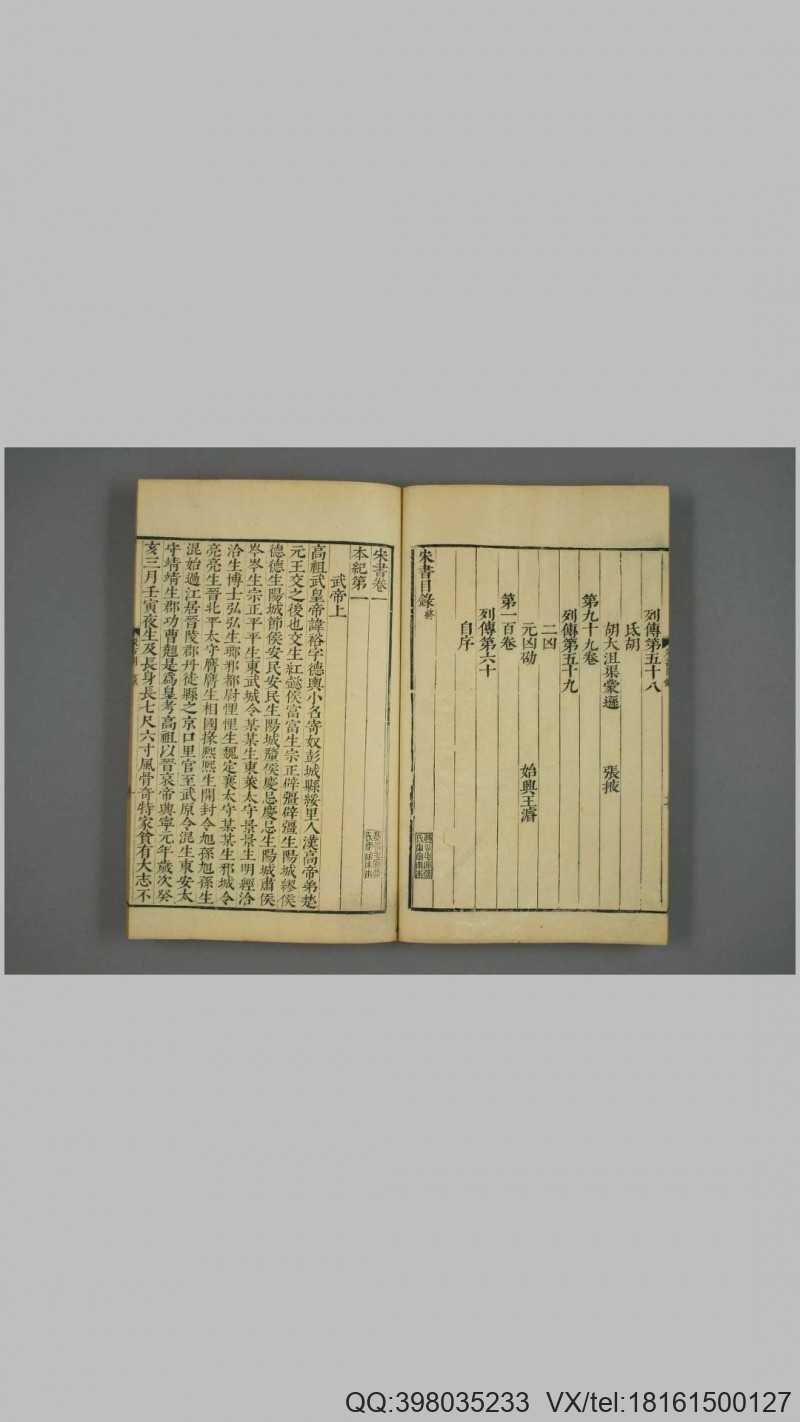 列傳第五十八
氐胡
胡大沮渠蒙遜 張掖
第九十九卷
列傳第五十九
二凶
元凶劭 始興王濬
第一百卷
列傳第六十
自序
宋書目錄終
宋書卷一
本紀第一
武帝上
高祖武皇帝諱裕字德輿小名寄奴彭城縣綏里人漢高帝弟楚
元王交之後也交生紅懿侯富富生宗正辟彊辟彊生陽城繆侯
德德生陽城節侯安民安民生陽城釐侯慶忌慶忌生陽城肅侯
岑岑生宗正平平生東武城令某某生東萊太守景景生明經洽
洽生博士弘弘生琅邪都尉悝悝生魏定襄太守某某生邪城令
亮亮生晉北平太守膺膺生相國掾熙熙生開封令旭孫旭孫生
混始過江居晉陵郡丹徒縣之京口里官至武原令混生東安太
守靖靖生郡功曹翹是爲皇考高祖以晉哀帝興寧元年歲次癸
亥三月壬寅夜生及長身長七尺六寸風骨奇特家貧有大志不
QQ:398035233 VX/tel:18161500127